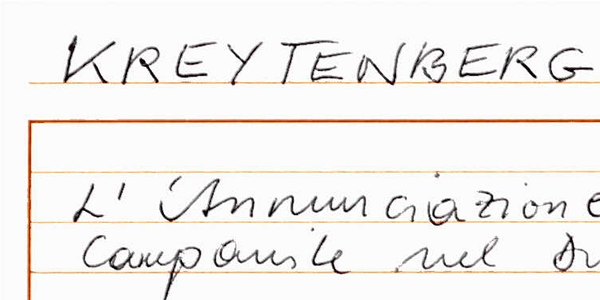 KREYTENBERG
L'Annunciazione
Campanile nel